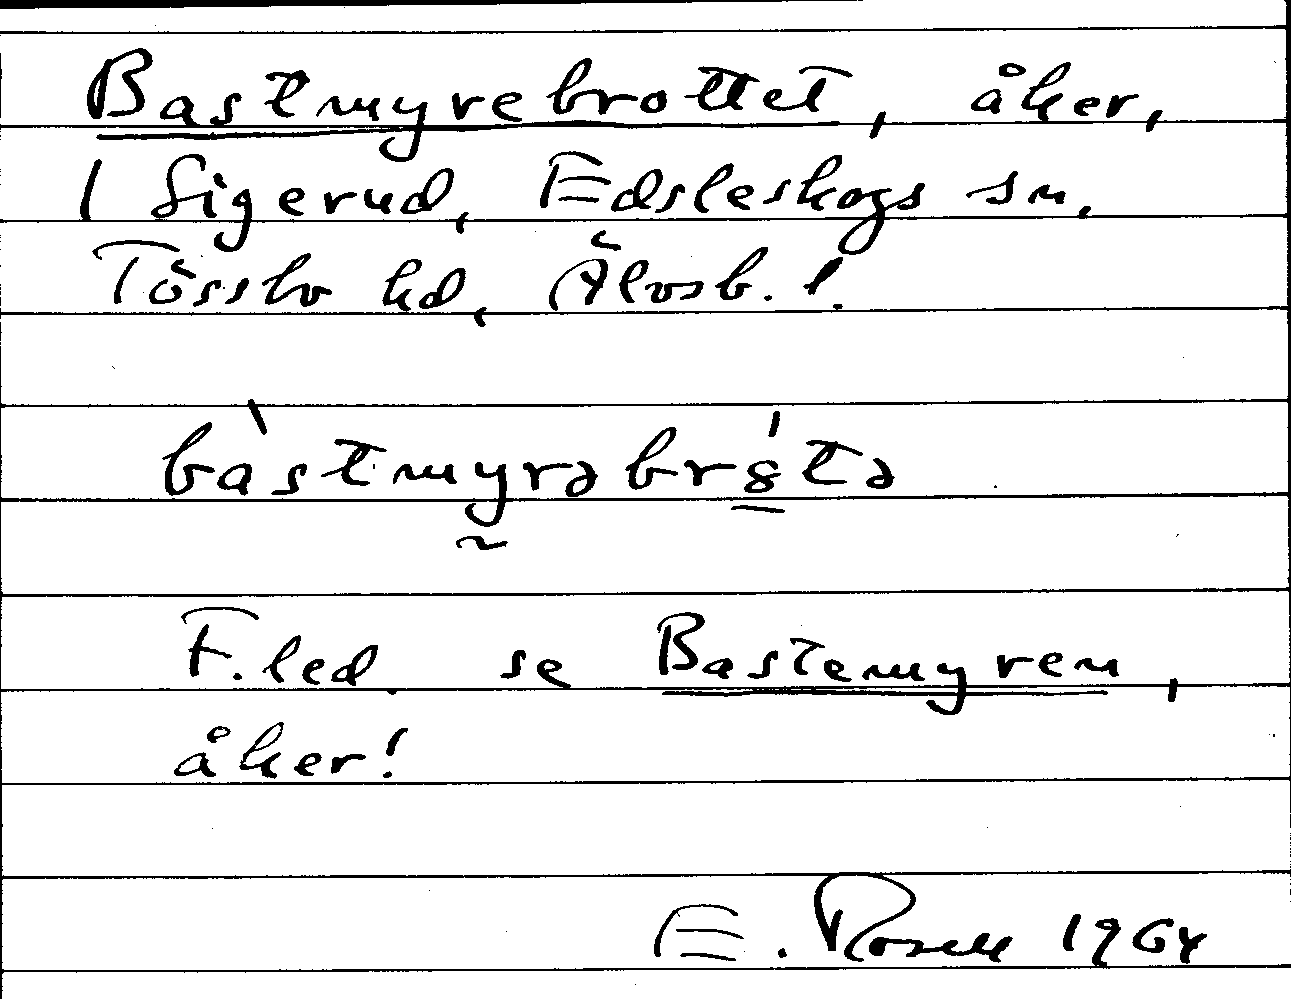 Bastmyrebrottet, åker,
1 Sigerud, Edsleskogs sn,
Tössbo hd, Älvsb. l.
bàstmyrəbr8́tə
F.led se Bastemyren,
åker!
E. Rosell 1964